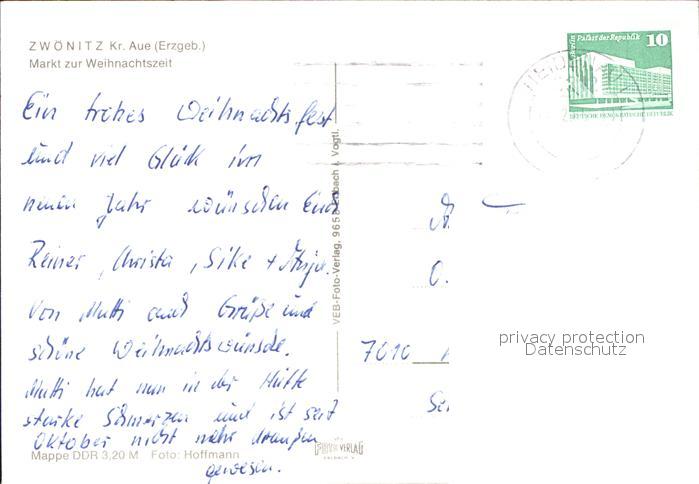 ZWÖNITZ Kr. Aue (Erzgeb.)
Markt zur Weihnachtszeit
Ein frohes Weihnachtsfest
und viel Glück im
neuen Jahr wünschen Euch
Reiner, Christa, Silke +
Von Mutti auch Grüße und
schöne Weihnachtswünsche.
Mutti hat nun in der Hüfte
starke Schmerzen und ist seit
Oktober nicht mehr draußen
gewesen.
Mappe DDR 3,20 M Foto: Hoffmann
VEB-Foto-Verlag, 9658 Erlbach i. Vogtl.
FOTO VERLAG
ERLBACH V.
Berlin Palast der Republik 10
DEUTSCHE DEMOKRATISCHE REPUBLIK
7010
privacy protection
Datenschutz